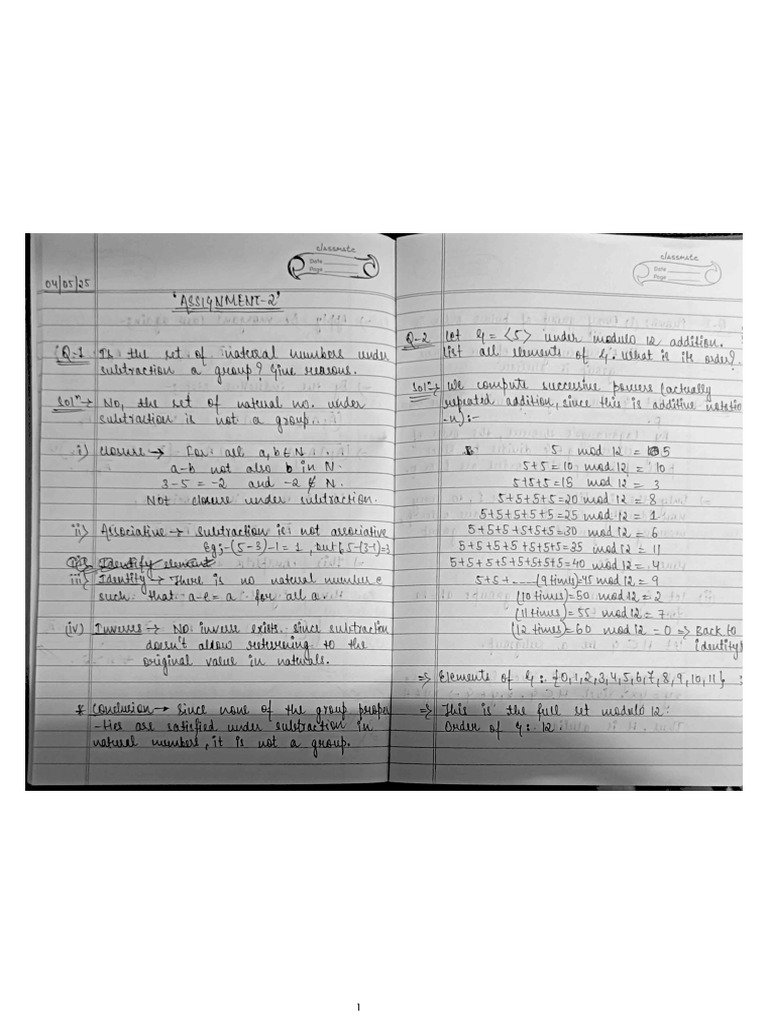 classmate
Date
Page
04/05/25
'ASSIGNMENT-2'
Q-1 Is the set of natural numbers under
subtraction a group? Give reasons.
Solⁿ→ No, the set of natural no. under
subtraction is not a group.
i) Closure → For all a, b ∈ N
a-b not also b in N.
3-5 = -2 and -2 ∉ N.
Not closure under subtraction.
ii) Associative → Subtraction is not associative
Eg:- (5-3)-1 = 1, but 5-(3-1)=3
Identify element
iii) Identity → There is no natural number e
such that a-e = a for all a.
(iv) Inverses → No inverse exists since subtraction
doesn't allow returning to the
original value in naturals.
* Conclusion → Since none of the group proper
-ties are satisfied under subtraction in
natural numbers, it is not a group.
classmate
Date
Page
Q-2 Let G = ⟨5⟩ under modulo 12 addition.
List all elements of G. What is its order?
Solⁿ→ We compute successive powers (actually
repeated addition, since this is additive notatio
-n):-
5 mod 12 = 5
5+5 = 10 mod 12 = 10
5+5+5 = 15 mod 12 = 3
5+5+5+5 = 20 mod 12 = 8
5+5+5+5+5 = 25 mod 12 = 1
5+5+5+5+5+5 = 30 mod 12 = 6
5+5+5+5+5+5+5 = 35 mod 12 = 11
5+5+5+5+5+5+5+5 = 40 mod 12 = 4
5+5+ ......(9 times) = 45 mod 12 = 9
(10 times) = 50 mod 12 = 2
(11 times) = 55 mod 12 = 7
(12 times) = 60 mod 12 = 0 => Back to
identity)
=> Elements of G: {0,1,2,3,4,5,6,7,8,9,10,11}
=> This is the full set modulo 12:
Order of G: 12.
1